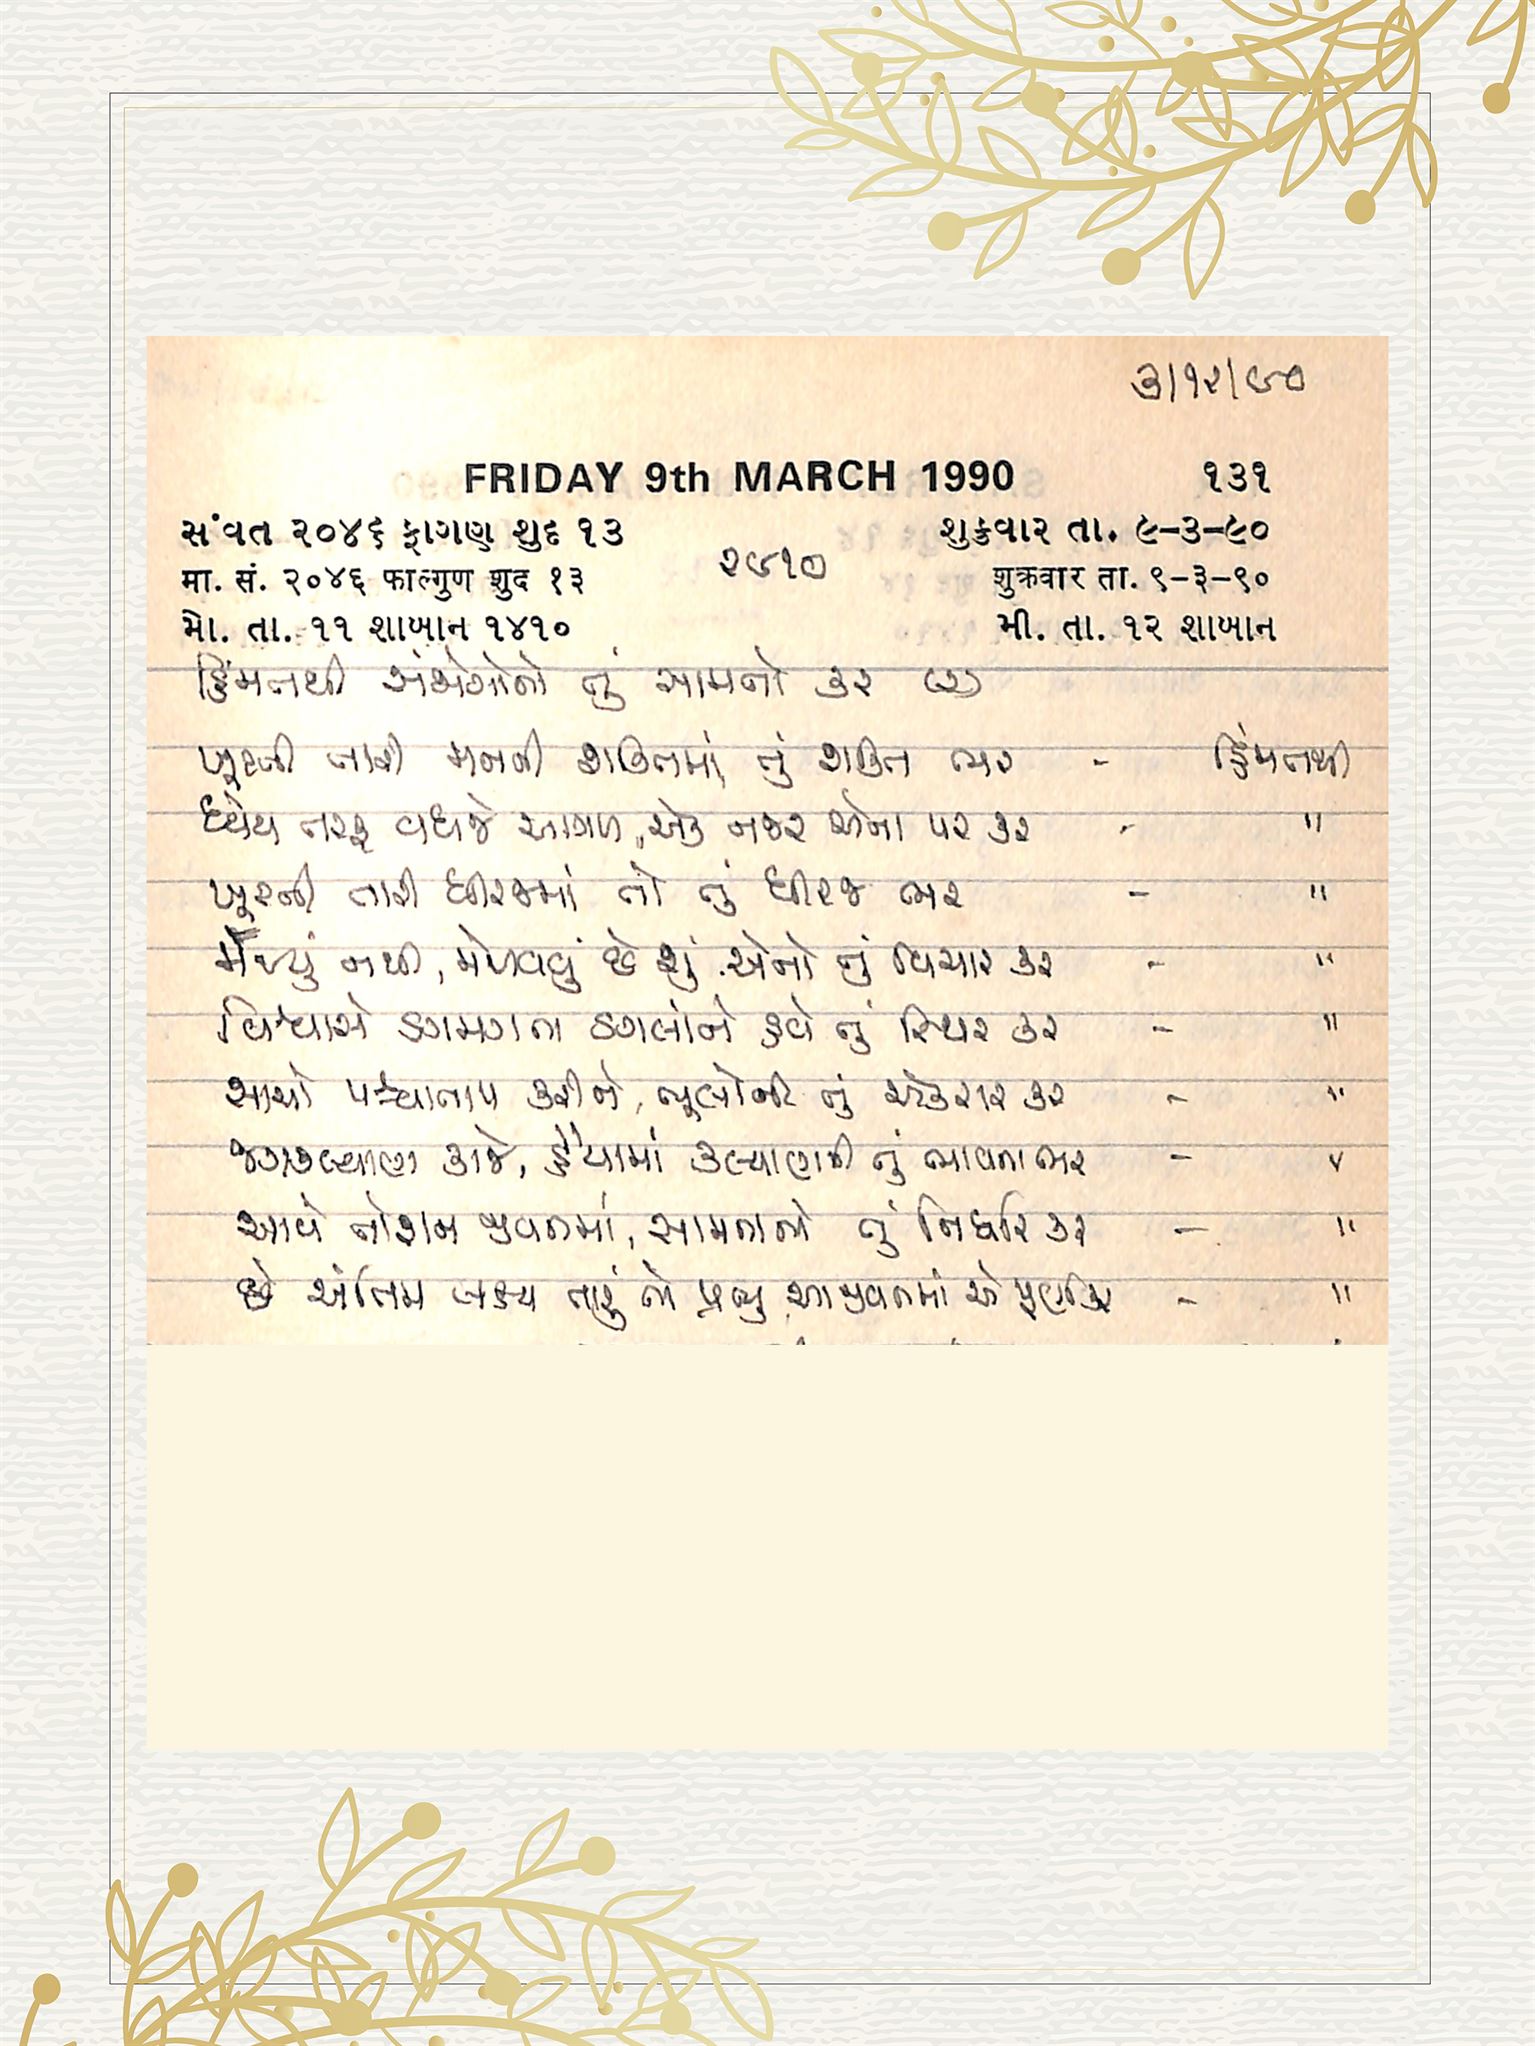 ૩/૧૨/૯૦
FRIDAY 9th MARCH 1990 ૧૩૧
સંવત ૨૦૪૬ ફાગણ શુદ ૧૩ શુક્રવાર તા. ૯-૩-૯૦
૨૯૧૦
मा. सं. २०४६ फाल्गुण शुद १३ शुक्रवार ता. ९-३-९०
મૌ. તા. ૧૧ શાબાન ૧૪૧૦ મી. તા. ૧૨ શાબાન
હિંમતથી સંજોગોનો તું સામનો કર (૨)
ખૂટતી તારી મનની શક્તિમાં, તું શક્તિ ભર - હિંમતથી
ધ્યેય તરફ વધજે આગળ, એક નજર એના પર કર - "
ખૂટતી તારી ધીરજમાં તો તું ધીરજ ભર - "
મેળવ્યું નથી, મેળવવું છે શું, એનો તું વિચાર કર - "
વિશ્વાસે ડગમગતા ડગલાંને હવે તું સ્થિર કર - "
સાચો પશ્ચાતાપ કરીને, ભૂલોની તું એકરાર કર - "
જગકલ્યાણ કાજે, હૈયામાં કલ્યાણની તું ભાવના ભર - "
આવે તોફાન જીવનમાં, સામનાનો તું નિર્ધાર કર - "
છે અંતિમ લક્ષ્ય તારું તો પ્રભુ, આ જીવનમાં એ પૂર્ણ કર - "